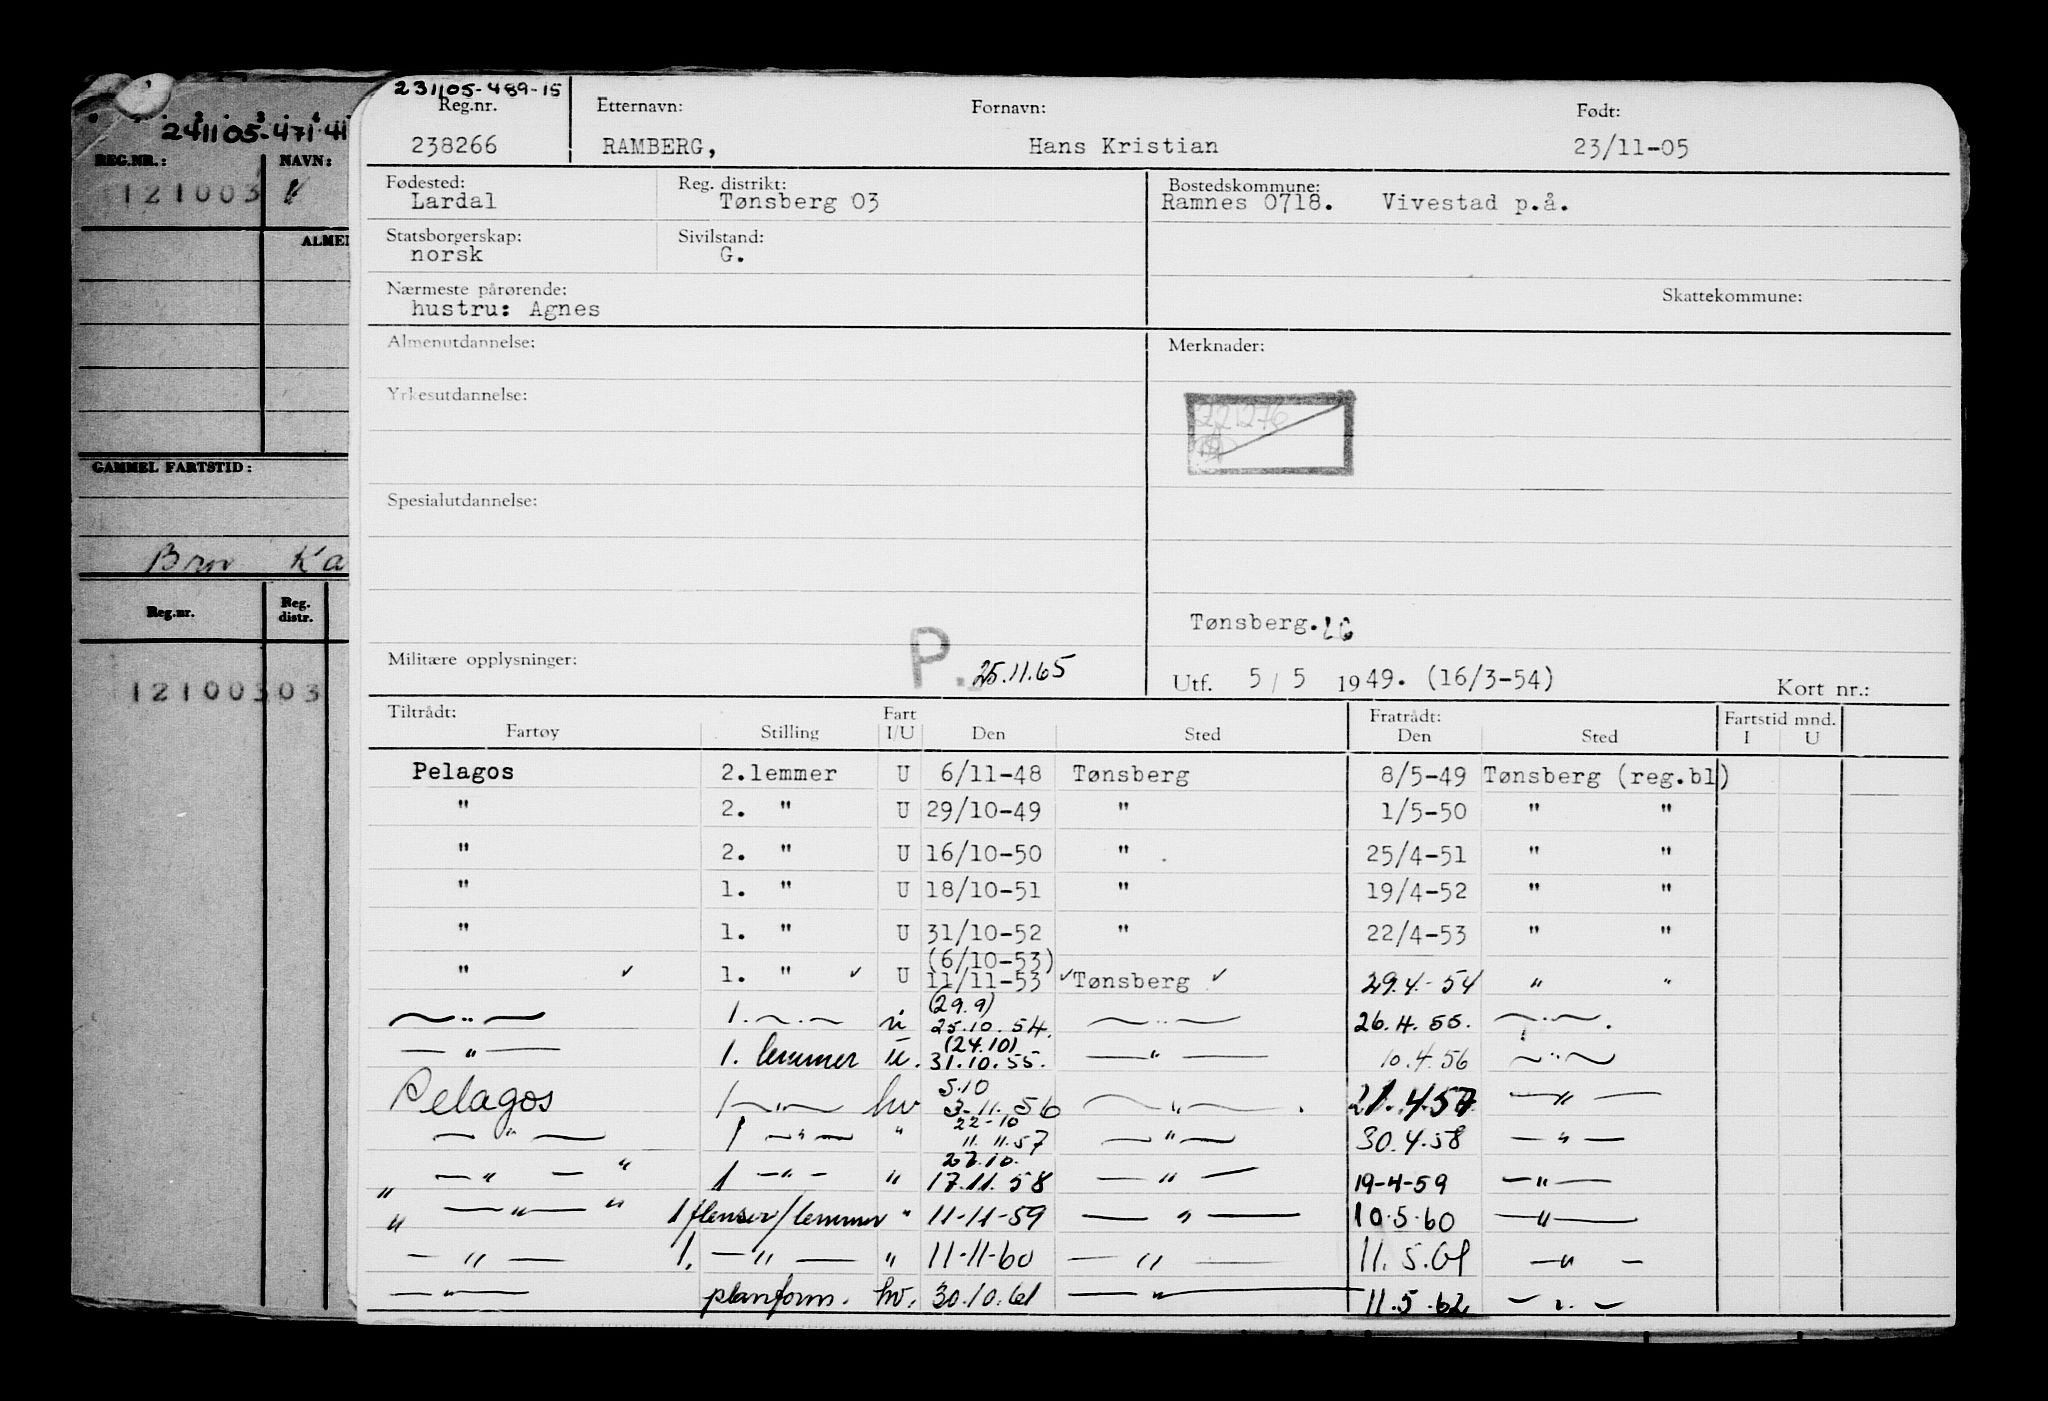 241105-471-41
REG.NR.: NAVN:
121003
ALMEN
GAMMEL FARTSTID:
Brn Ka
Reg.nr. Reg. distr.
12100303
231105-489-15
Reg.nr. Etternavn: Fornavn: Født:
238266 RAMBERG, Hans Kristian 23/11-05
Fødested: Reg. distrikt: Bostedskommune:
Lardal Tønsberg 03 Ramnes 0718. Vivestad p.å.
Statsborgerskap: Sivilstand:
norsk G.
Nærmeste pårørende: Skattekommune:
hustru: Agnes
Almenutdannelse: Merknader:
Yrkesutdannelse:
221276
Spesialutdannelse:
Tønsberg.
Militære opplysninger: P. 25.11.65
Utf. 5/5 1949. (16/3-54) Kort nr.:
Tiltrådt: Fart Fratrådt: Fartstid mnd.
Fartøy Stilling I/U Den Sted Den Sted I U
Pelagos 2.lemmer U 6/11-48 Tønsberg 8/5-49 Tønsberg (reg.bl)
" 2. " U 29/10-49 " 1/5-50 " "
" 2. " U 16/10-50 " 25/4-51 " "
" 1. " U 18/10-51 " 19/4-52 " "
" 1. " U 31/10-52 " 22/4-53 " "
(6/10-53)
" ✓ 1. " ✓ U 11/11-53 ✓ Tønsberg ✓ 29.4.-54 " "
(29.9)
—"— 1. —"— u 25.10.54. —"— 26.4.55. —"—.
(24.10)
—"— 1. lemmer u. 31.10.55. —"— 10.4.56 —"—
5.10
Pelagos 1 —"— hv 3.11.56 —"—. 21.4.57 —"—
22-10
—"— 1 —"— " 11.11.57 —"— 30.4.58 —"—
27.10.
" —"— " 1 —"— " 17.11.58 —"— 19-4-59 —"—
" —"— " 1 flenser/lemmer " 11-11-59 —"— 10.5.60 —"—
—"— 1. —"— " 11-11-60 —"— 11.5.61 —"—
—"— planform. hv. 30.10.61 —"— 11.5.62 —"—